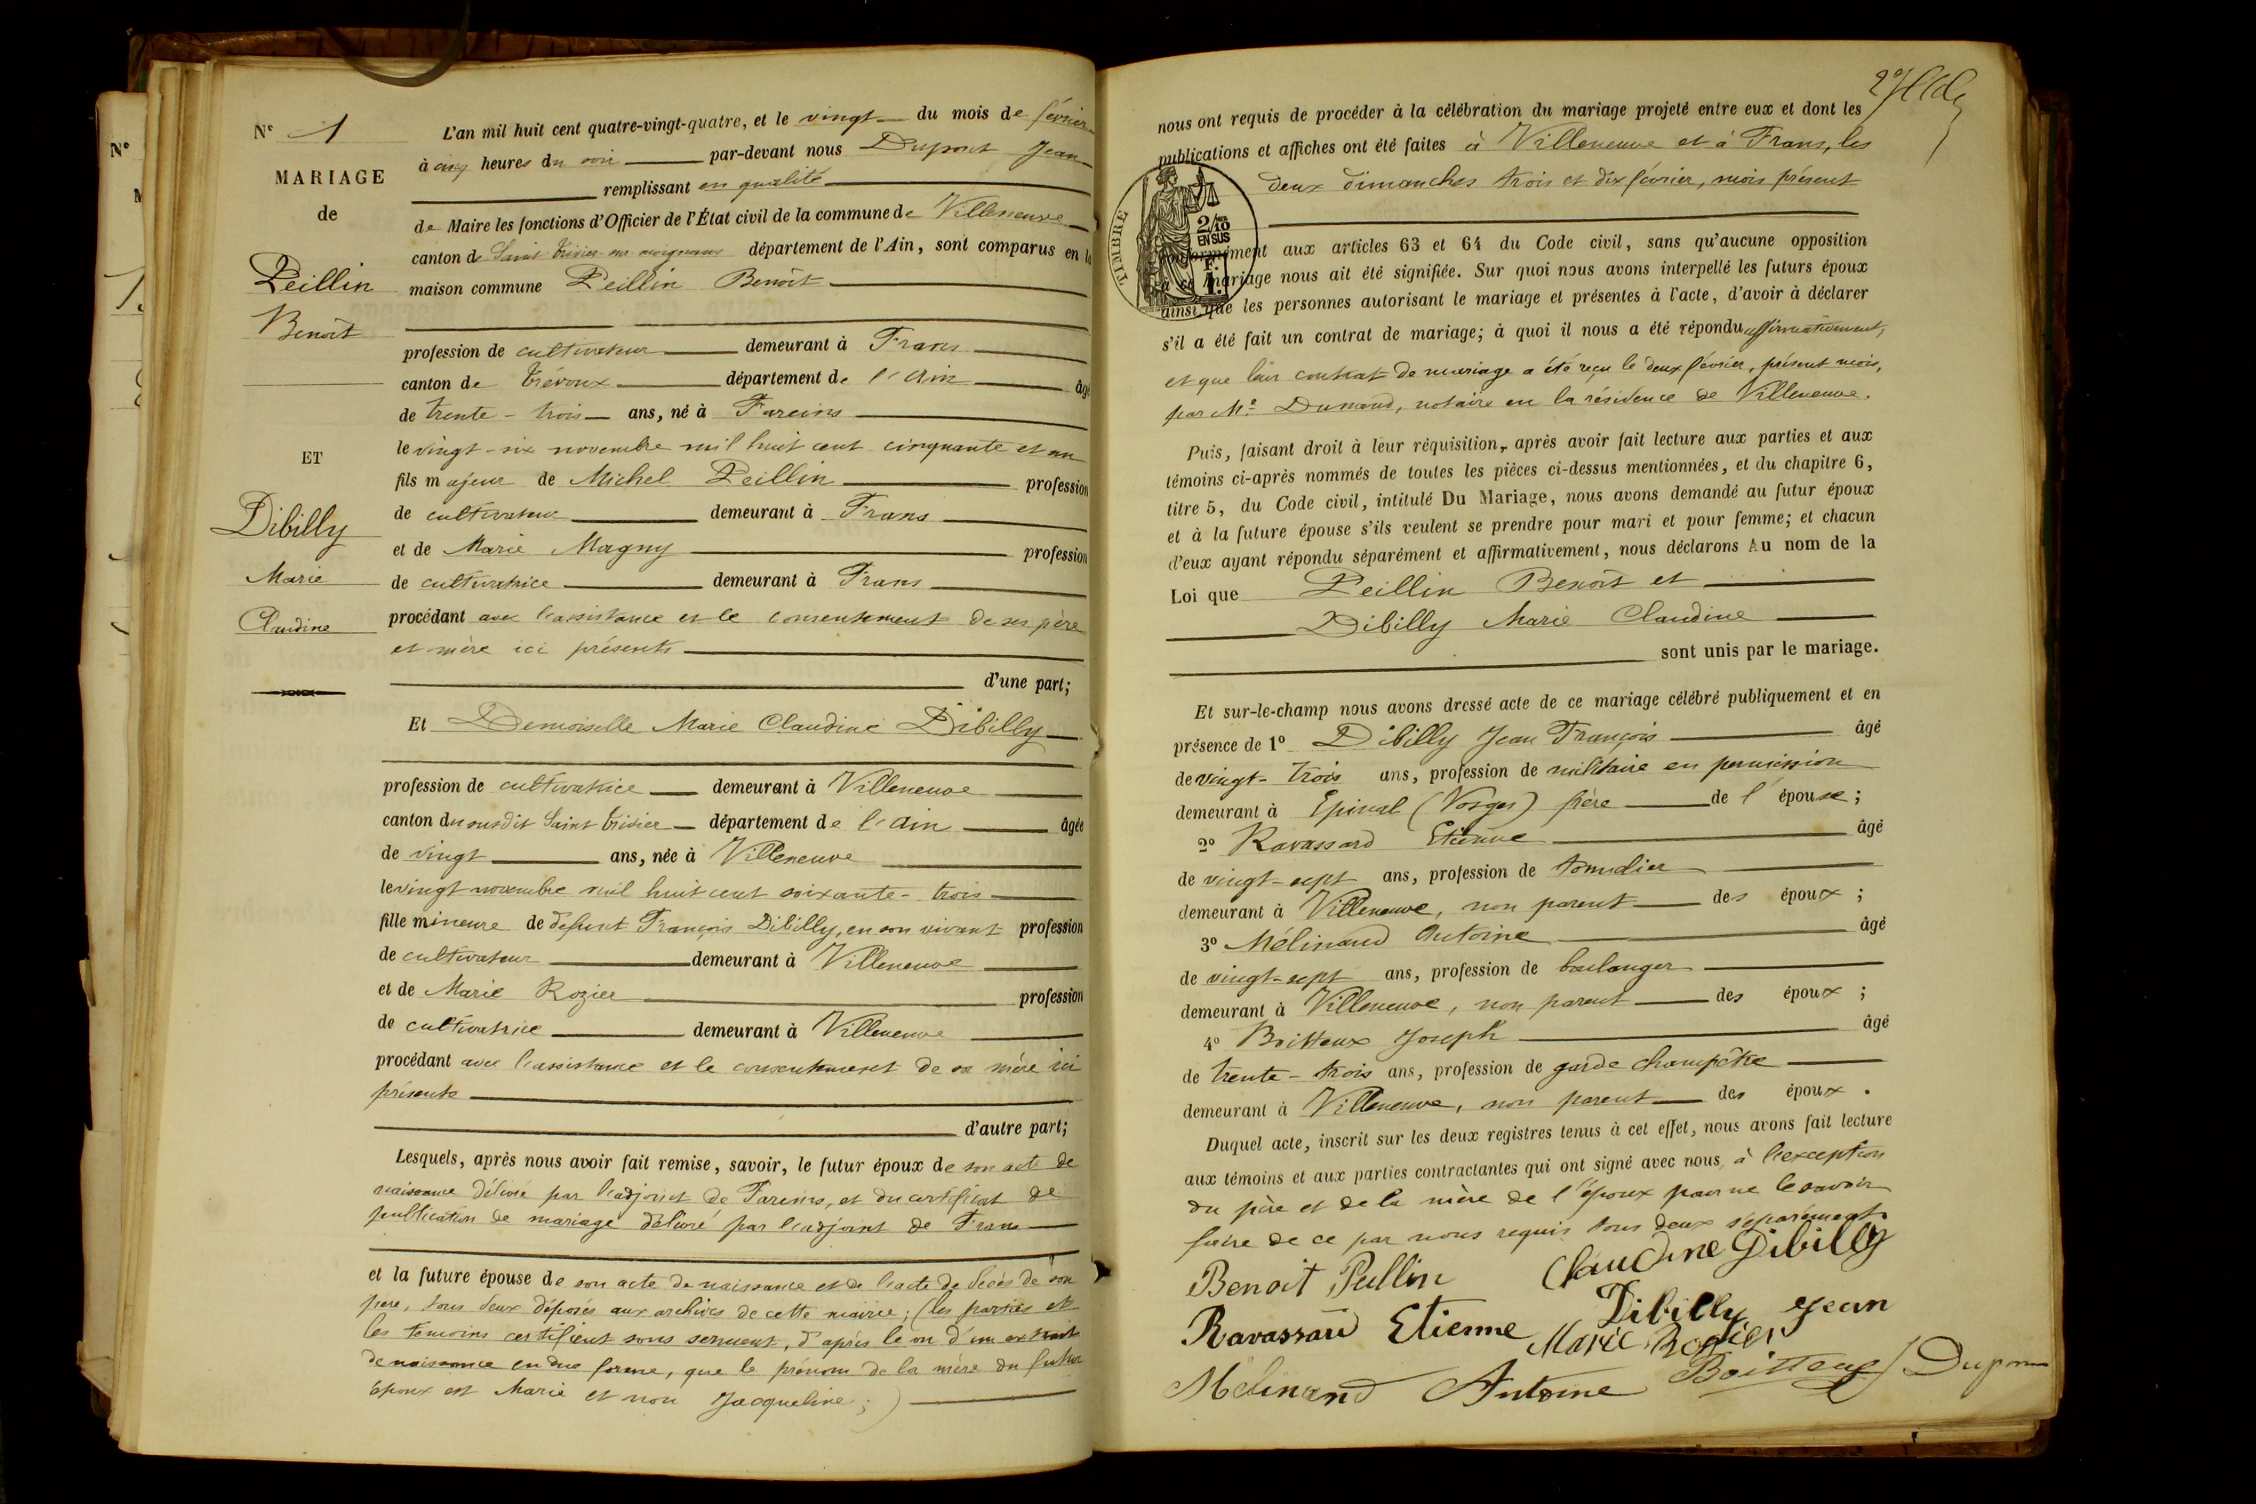 N° 1
MARIAGE
de
Peillin
Benoît
ET
Dibilly
Marie
Claudine
L'an mil huit cent quatre-vingt-quatre, et le vingt du mois de février
à cinq heures du soir par-devant nous Dupont Jean
remplissant en qualité
de Maire les fonctions d'Officier de l'État civil de la commune de Villeneuve
canton de Saint Trivier sur Moignans département de l'Ain, sont comparus en la
maison commune Peillin Benoît
profession de cultivateur demeurant à Frans
canton de Trévoux département de l'Ain âgé
de trente-trois ans, né à Fareins
le vingt-six novembre mil huit cent cinquante et un
fils majeur de Michel Peillin profession
de cultivateur demeurant à Frans
et de Marie Magny profession
de cultivatrice demeurant à Frans
procédant avec l'assistance et le consentement de ses père
et mère ici présents
d'une part;
Et Demoiselle Marie Claudine Dibilly
profession de cultivatrice demeurant à Villeneuve
canton du susdit Saint Trivier département de l'Ain âgée
de vingt ans, née à Villeneuve
le vingt novembre mil huit cent soixante-trois
fille mineure de défunt François Dibilly, en son vivant profession
de cultivateur demeurant à Villeneuve
et de Marie Rozier profession
de cultivatrice demeurant à Villeneuve
procédant avec l'assistance et le consentement de sa mère ici
présente
d'autre part;
Lesquels, après nous avoir fait remise, savoir, le futur époux de son acte de
naissance délivré par l'adjoint de Fareins, et du certificat de
publication de mariage délivré par l'adjoint de Frans
et la future épouse de son acte de naissance et de l'acte de décès de son
père, tous deux déposés aux archives de cette mairie; (les parties et
les témoins certifient sous serment, d'après le vu d'un extrait
de naissance en due forme, que le prénom de la mère du futur
époux est Marie et non Jacqueline;)
nous ont requis de procéder à la célébration du mariage projeté entre eux et dont les
publications et affiches ont été faites à Villeneuve et à Frans, les
deux dimanches trois et dix février, mois présent
TIMBRE
2/10
EN SUS
F.
1.
conformément aux articles 63 et 64 du Code civil, sans qu'aucune opposition
à ce mariage nous ait été signifiée. Sur quoi nous avons interpellé les futurs époux
ainsi que les personnes autorisant le mariage et présentes à l'acte, d'avoir à déclarer
s'il a été fait un contrat de mariage; à quoi il nous a été répondu affirmativement,
et que leur contrat de mariage a été reçu le deux février, présent mois,
par Me Dumand, notaire en la résidence de Villeneuve.
Puis, faisant droit à leur réquisition, après avoir fait lecture aux parties et aux
témoins ci-après nommés de toutes les pièces ci-dessus mentionnées, et du chapitre 6,
titre 5, du Code civil, intitulé Du Mariage, nous avons demandé au futur époux
et à la future épouse s'ils veulent se prendre pour mari et pour femme; et chacun
d'eux ayant répondu séparément et affirmativement, nous déclarons Au nom de la
Loi que Peillin Benoît et
Dibilly Marie Claudine
sont unis par le mariage.
Et sur-le-champ nous avons dressé acte de ce mariage célébré publiquement et en
présence de 1° Dibilly Jean François âgé
de vingt-trois ans, profession de militaire en permission
demeurant à Epinal (Vosges) frère de l'épouse;
2° Ravassard Etienne âgé
de vingt-sept ans, profession de tonnelier
demeurant à Villeneuve, non parent des époux;
3° Mélinand Antoine âgé
de vingt-sept ans, profession de boulanger
demeurant à Villeneuve, non parent des époux;
4° Boitteux Joseph âgé
de trente-trois ans, profession de garde champêtre
demeurant à Villeneuve, non parent des époux.
Duquel acte, inscrit sur les deux registres tenus à cet effet, nous avons fait lecture
aux témoins et aux parties contractantes qui ont signé avec nous, à l'exception
du père et de la mère de l'époux pour ne le savoir
faire de ce par nous requis tous deux séparément.
Benoit Peillin Claudine Dibilly
Ravassard Etienne Dibilly Jean
Marie Rozier
Mélinand Antoine Boitteux Dupont